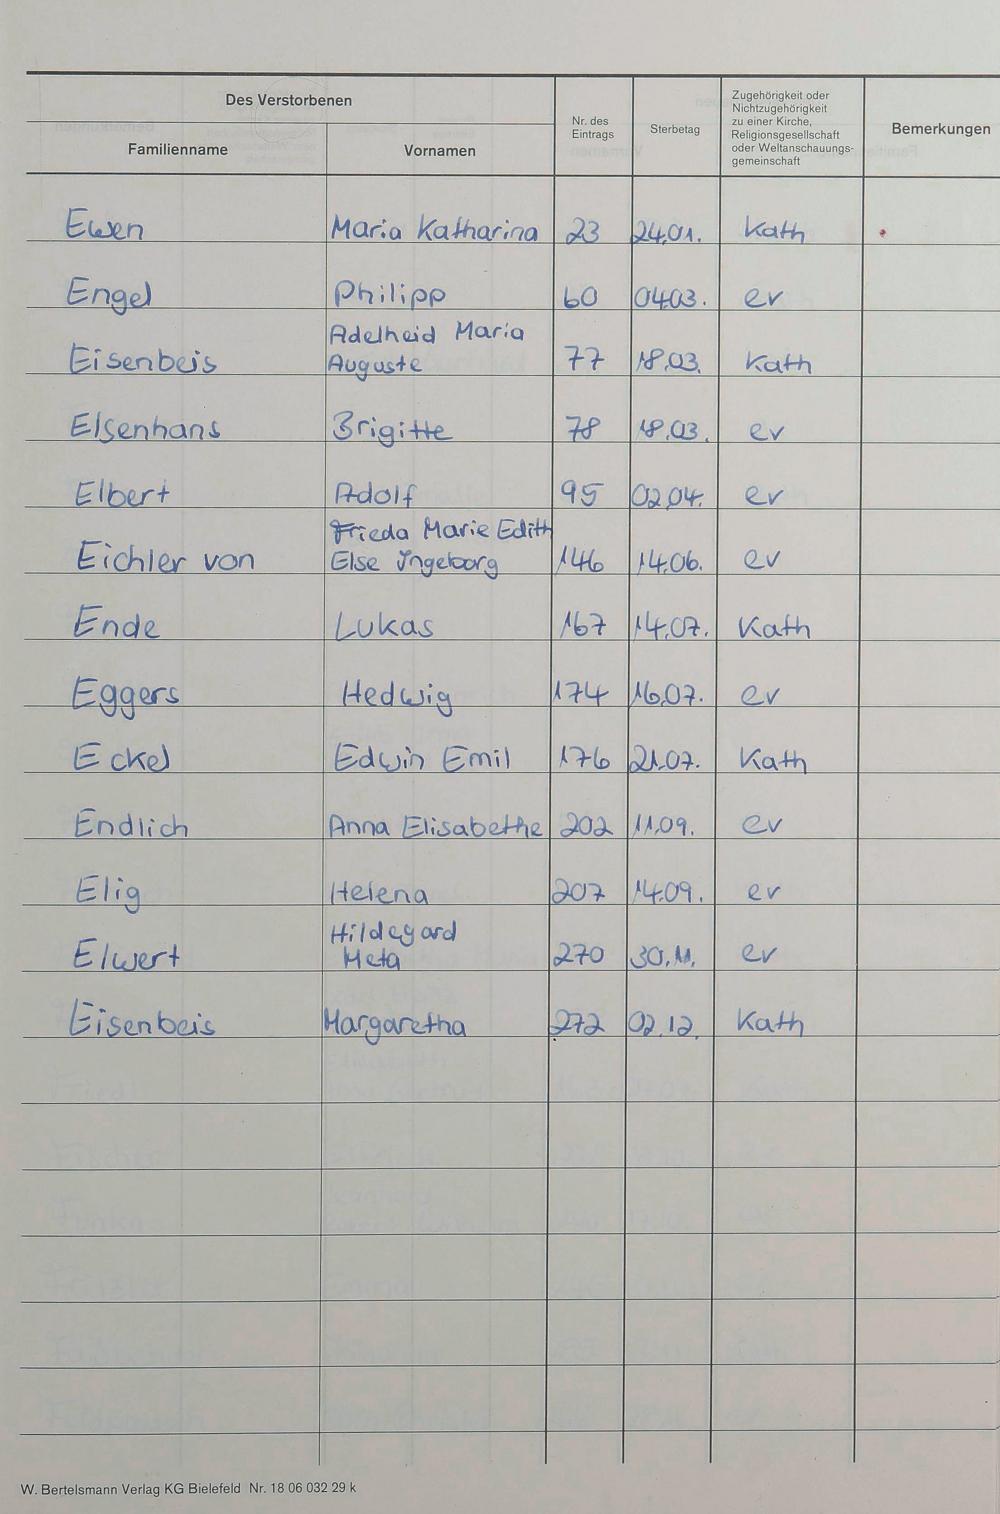 Des Verstorbenen
Familienname
Vornamen
Nr. des
Eintrags
Sterbetag
Zugehörigkeit oder
Nichtzugehörigkeit
zu einer Kirche,
Religionsgesellschaft
oder Weltanschauungs-
gemeinschaft
Bemerkungen
Ewen Maria Katharina 23 24.01. Kath
Engel Philipp 60 04.03. ev
Adelheid Maria
Eisenbeis Auguste 77 18.03. Kath
Elsenhans Brigitte 78 18.03. ev
Elbert Adolf 95 02.04. ev
Frieda Marie Edith
Eichler von Else Ingeborg 146 14.06. ev
Ende Lukas 167 14.07. Kath
Eggers Hedwig 174 16.07. ev
Eckel Edwin Emil 176 21.07. Kath
Endlich Anna Elisabethe 202 11.09. ev
Elig Helena 207 14.09. ev
Hildegard
Elwert Meta 270 30.11. ev
Eisenbeis Margaretha 272 02.12. Kath
W. Bertelsmann Verlag KG Bielefeld Nr. 18 06 032 29 k